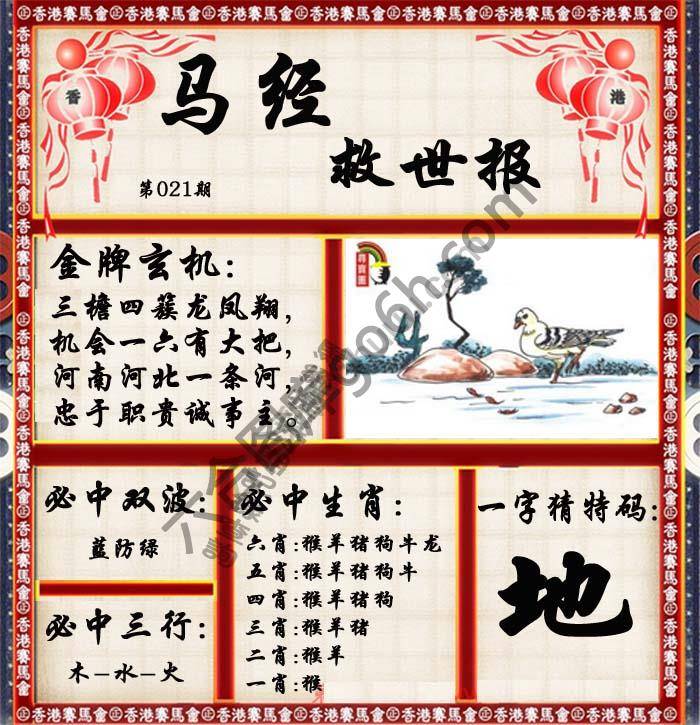 香港賽馬會 正 香港賽馬會 正 香港賽馬會 正 香港賽馬會 正 香港賽馬會
香
港
马经
救世报
第021期
金牌玄机:
三檐四簇龙凤翔,
机会一六有大把,
河南河北一条河,
忠于职贵诚事主。
尋寶圖
必中双波:
蓝防绿
必中三行:
木-水-火
必中生肖:
六肖:猴羊猪狗牛龙
五肖:猴羊猪狗牛
四肖:猴羊猪狗
三肖:猴羊猪
二肖:猴羊
一肖:猴
一字猜特码:
地